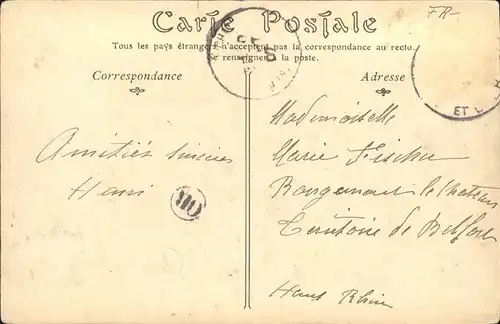 Carte Postale
Tous les pays étrangers n'acceptent pas la correspondance au recto.
Se renseigner à la poste.
Correspondance
Adresse
FR-
Amitiés sincères
Henri
Mademoiselle
Marie Fischer
Rougemont le Château
Territoire de Belfort
Haut Rhin